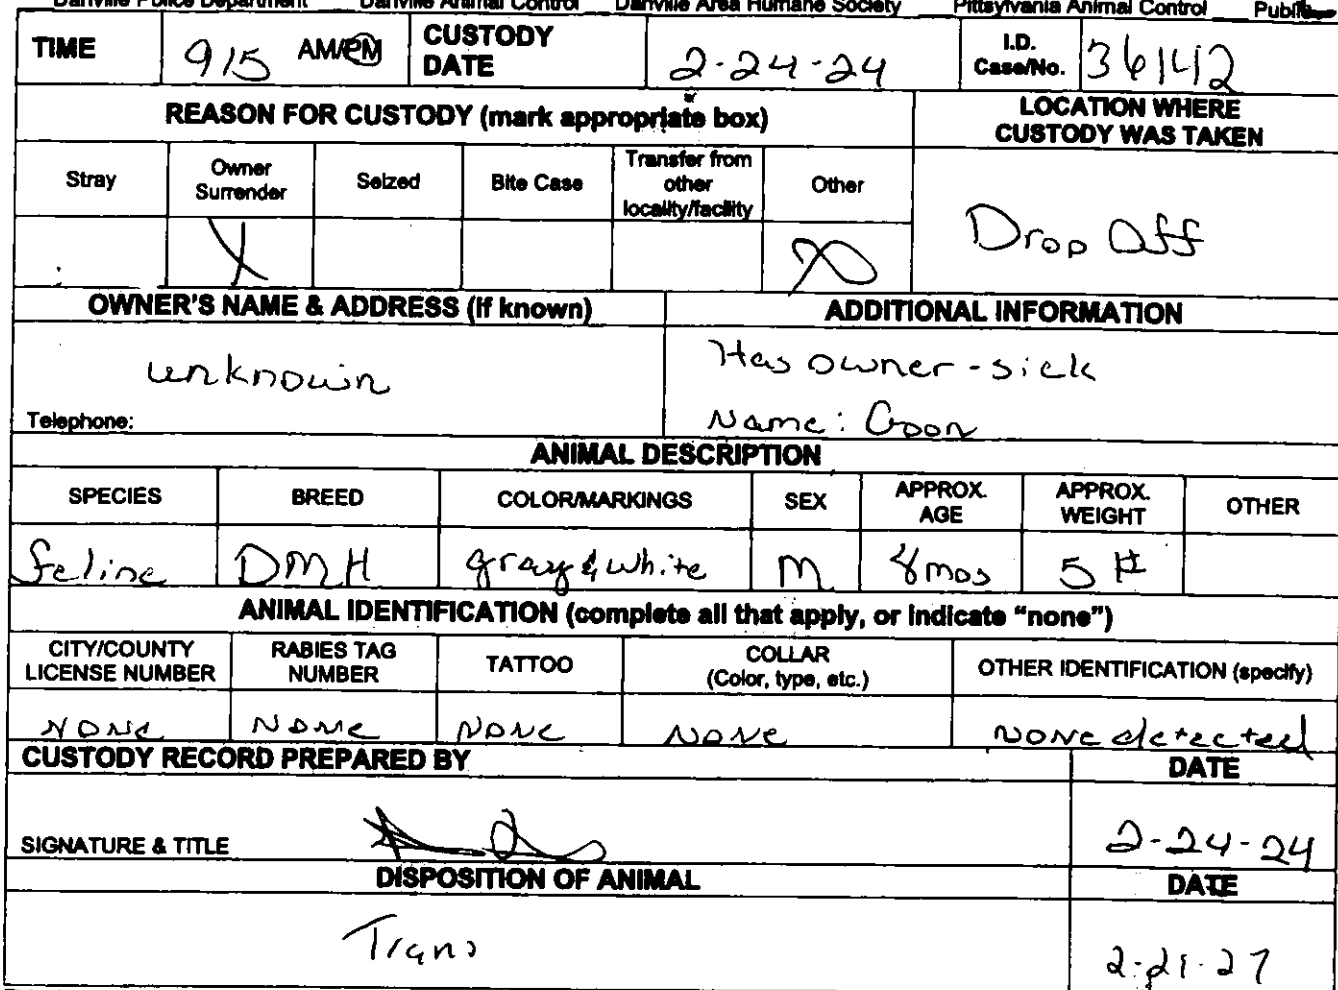 Danville Police Department Danville Animal Control Danville Area Humane Society Pittsylvania Animal Control
TIME 915 AM/PM CUSTODY DATE 2-24-24 I.D. Case/No. 36142
REASON FOR CUSTODY (mark appropriate box) LOCATION WHERE CUSTODY WAS TAKEN
Stray Owner Surrender Seized Bite Case Transfer from other locality/facility Other
X X Drop Off
OWNER'S NAME & ADDRESS (If known) ADDITIONAL INFORMATION
unknown Has owner - sick
Telephone: Name: Goon
ANIMAL DESCRIPTION
SPECIES BREED COLOR/MARKINGS SEX APPROX. AGE APPROX. WEIGHT OTHER
feline DMH gray & white M 8 mos 5 #
ANIMAL IDENTIFICATION (complete all that apply, or indicate "none")
CITY/COUNTY LICENSE NUMBER RABIES TAG NUMBER TATTOO COLLAR (Color, type, etc.) OTHER IDENTIFICATION (specify)
None None None None None detected
CUSTODY RECORD PREPARED BY DATE
SIGNATURE & TITLE 2-24-24
DISPOSITION OF ANIMAL DATE
Trans